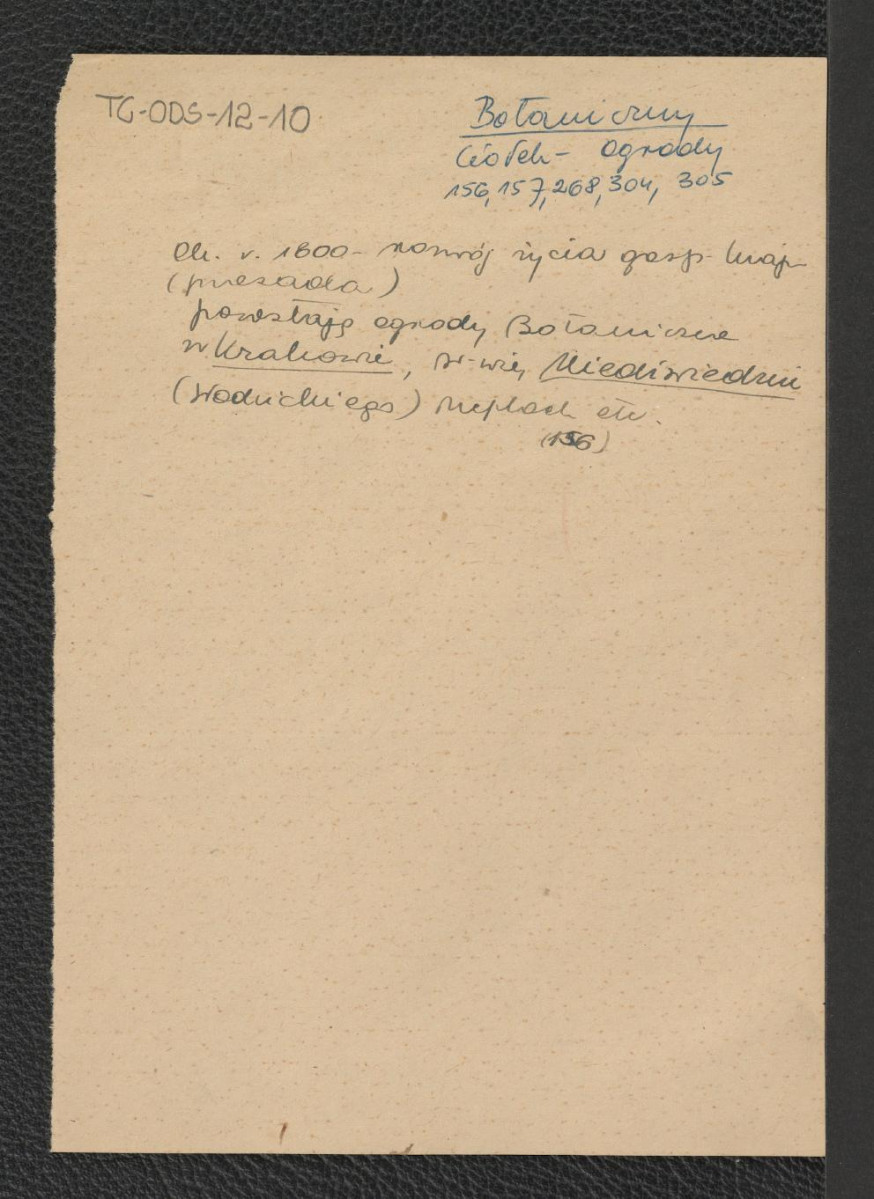 TG-ODS-12-10
Botaniczny
Ciołek - Ogrody
156, 157, 268, 304, 305
Ok. r. 1800 - rozwój życia gosp. kraju
(przesada)
powstają ogrody Botaniczne
w Krakowie, w Niedźwiedziu
(Wodzickiego) etc.
(156)